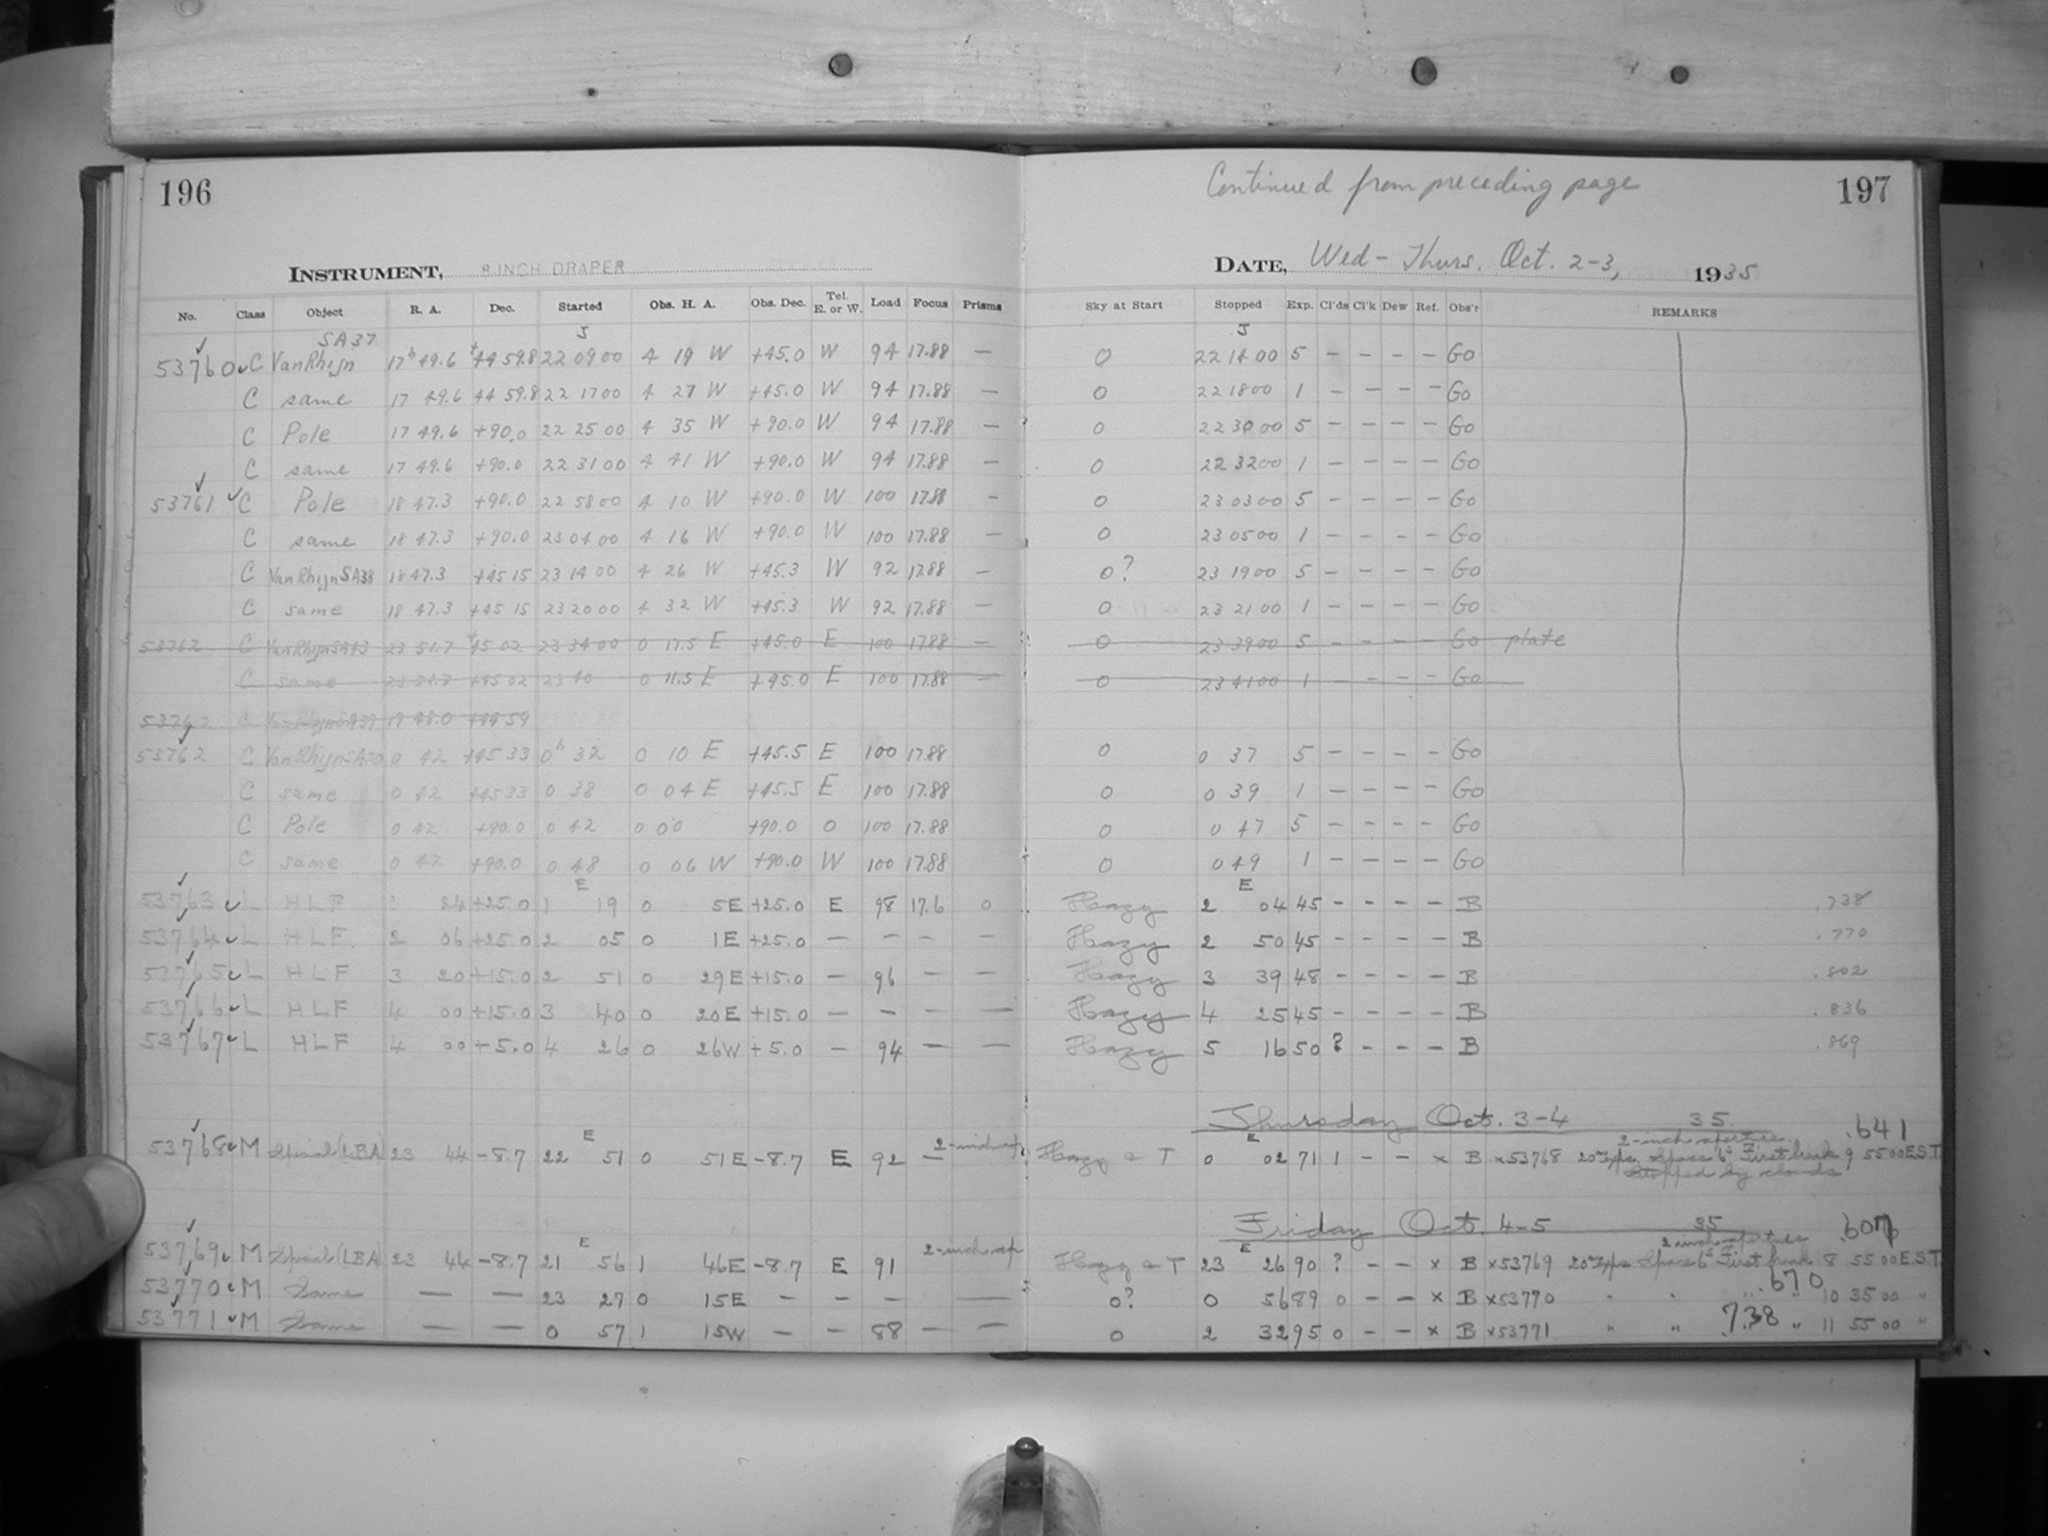 196
Continued from preceding page
197
INSTRUMENT, 8 INCH DRAPER
DATE, Wed - Thurs. Oct. 2-3, 1935
No. Class Object R. A. Dec. Started Obs. H. A. Obs. Dec. Tel. E. or W. Load Focus Prisms Sky at Start Stopped Exp. Cl'ds Cl'k Dew Ref. Obs'r REMARKS
SA37 J J
53760 C Van Rhijn 17h 49.6 +44 59.8 22 09 00 4 19 W +45.0 W 94 17.88 — 0 22 14 00 5 - - - - Go
C same 17 49.6 44 59.8 22 17 00 4 27 W +45.0 W 94 17.88 — 0 22 18 00 1 - - - - Go
C Pole 17 49.6 +90.0 22 25 00 4 35 W +90.0 W 94 17.88 — 0 22 30 00 5 - - - - Go
C same 17 49.6 +90.0 22 31 00 4 41 W +90.0 W 94 17.88 — 0 22 32 00 1 - - - - Go
53761 C Pole 18 47.3 +90.0 22 58 00 4 10 W +90.0 W 100 17.88 - 0 23 03 00 5 - - - - Go
C same 18 47.3 +90.0 23 04 00 4 16 W +90.0 W 100 17.88 — 0 23 05 00 1 - - - - Go
C Van Rhijn SA38 18 47.3 +45 15 23 14 00 4 26 W +45.3 W 92 17.88 — 0? 23 19 00 5 - - - - Go
C same 18 47.3 +45 15 23 20 00 4 32 W +45.3 W 92 17.88 — 0 23 21 00 1 - - - - Go
53762 C Van Rhijn SA43 23 51.7 +45 02 23 34 00 0 17.5 E +45.0 E 100 17.88 — 0 23 39 00 5 - - - - Go plate
C same 23 51.7 +45 02 23 40 0 11.5 E +45.0 E 100 17.88 — 0 23 41 00 1 - - - - Go
53762 C Van Rhijn +44 59
53762 C Van Rhijn 0 42 +45 33 0h 32 0 10 E +45.5 E 100 17.88 0 0 37 5 - - - - Go
C same 0 42 +45 33 0 38 0 04 E +45.5 E 100 17.88 0 0 39 1 - - - - Go
C Pole 0 42 +90.0 0 42 0 00 +90.0 0 100 17.88 0 0 47 5 - - - - Go
C same 0 42 +90.0 0 48 0 06 W +90.0 W 100 17.88 0 0 49 1 - - - - Go
E E
53763 L HLF 1 24 +25.0 1 19 0 5E +25.0 E 98 17.6 0 Hazy 2 04 45 - - - - B .738
53764 L HLF 2 06 +25.0 2 05 0 1E +25.0 — - - — Hazy 2 50 45 - - - - B .770
53765 L HLF 3 20 +15.0 2 51 0 29E +15.0 - 96 — — Hazy 3 39 48 - - - - B .802
53766 L HLF 4 00 +15.0 3 40 0 20E +15.0 — - — — Hazy 4 25 45 - - - - B .836
53767 L HLF 4 00 +5.0 4 26 0 26W +5.0 - 94 — — Hazy 5 16 50 ? - - - B .869
Thursday Oct. 3-4 35 .641
E E 2-inch aperture
53768 M Special (LBA) 23 44 -8.7 22 51 0 51E -8.7 E 92 — 2-inch ap Hazy & T 0 02 71 1 - - x B x53768 20 Exps. Space 6s First break 9 55 00 E.S.T.
Stopped by clouds
Friday Oct. 4-5 35 .607
E E 2 inch aperture
53769 M Special (LBA) 23 44 -8.7 21 56 1 46E -8.7 E 91 2-inch ap Hazy & T 23 26 90 ? - - x B x53769 20 Exps Space 6s First break 8 55 00 E.S.T.
53770 M Same — — 23 27 0 15E - - - - — 0? 0 56 89 0 - - x B x53770 " " .670 " 10 35 00 "
53771 M Same — — 0 57 1 15W - - 88 - — 0 2 32 95 0 - - x B x53771 " " .738 " 11 55 00 "